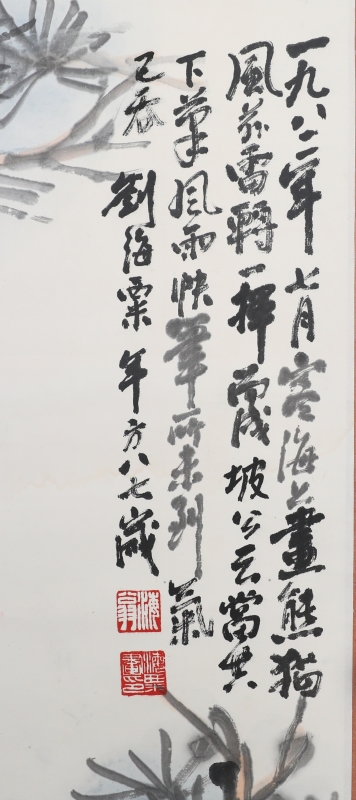 一九八二年七月客海上畫熊猫
風飛雷轉一揮而成坡公云當其
下筆風雨快筆所未到氣
已吞 劉海粟年方八七歲
海翁
海粟畫印